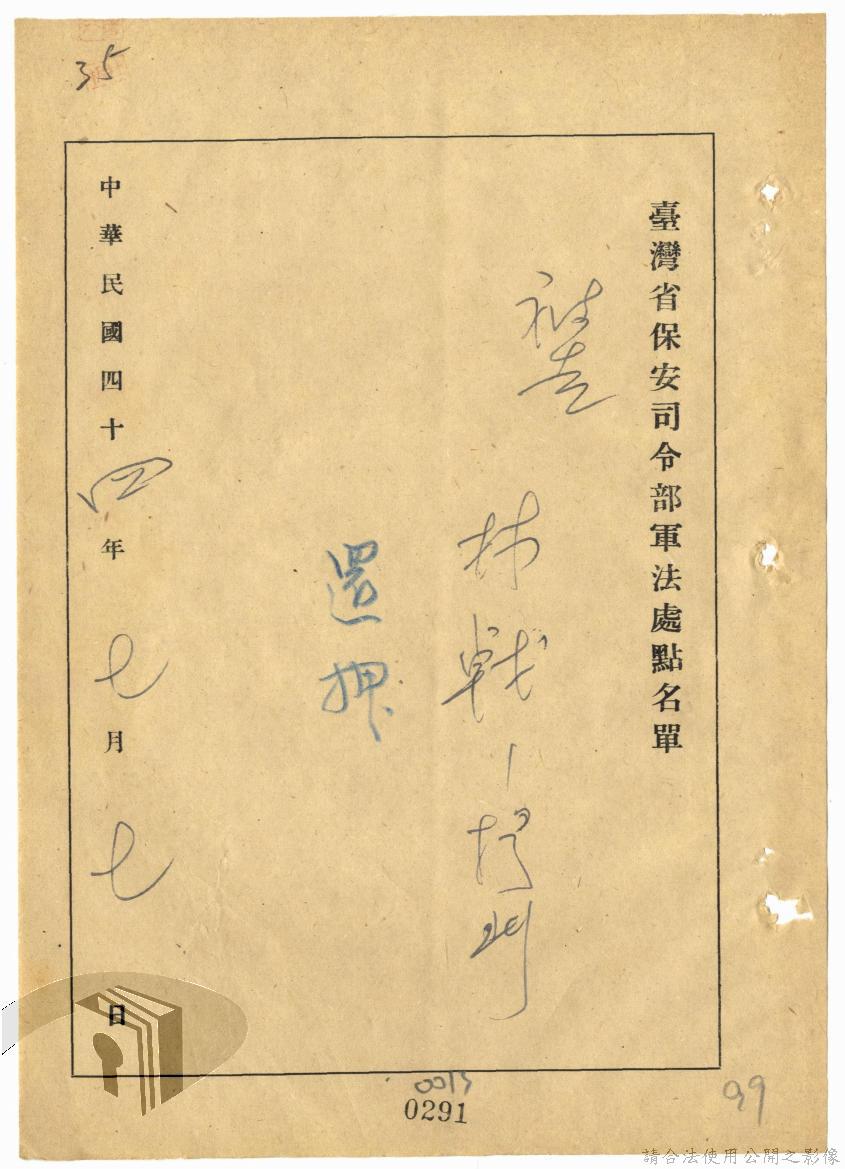 35
臺灣省保安司令部軍法處點名單
被告
林戰
還押
中華民國四十四年七月七日
0013
0291
99
請合法使用公開之影像